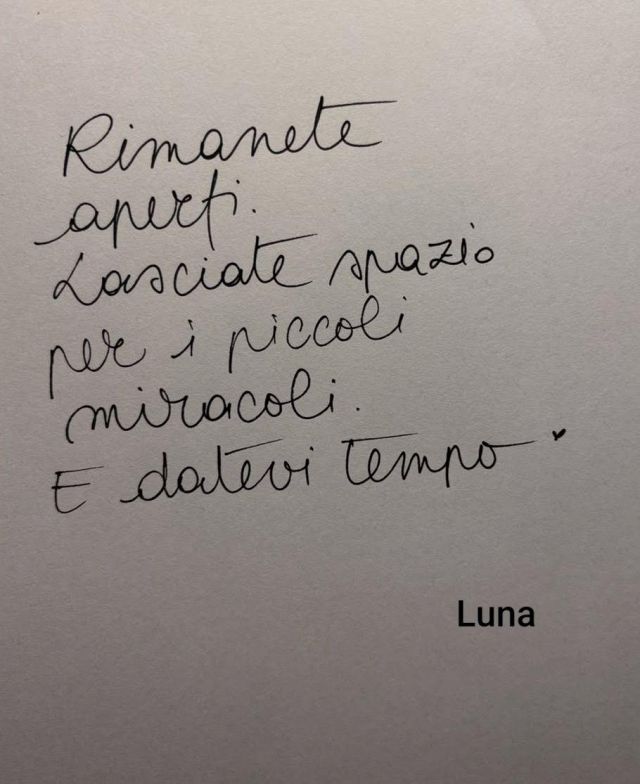 Rimanete
aperti.
Lasciate spazio
per i piccoli
miracoli.
E datevi tempo
Luna